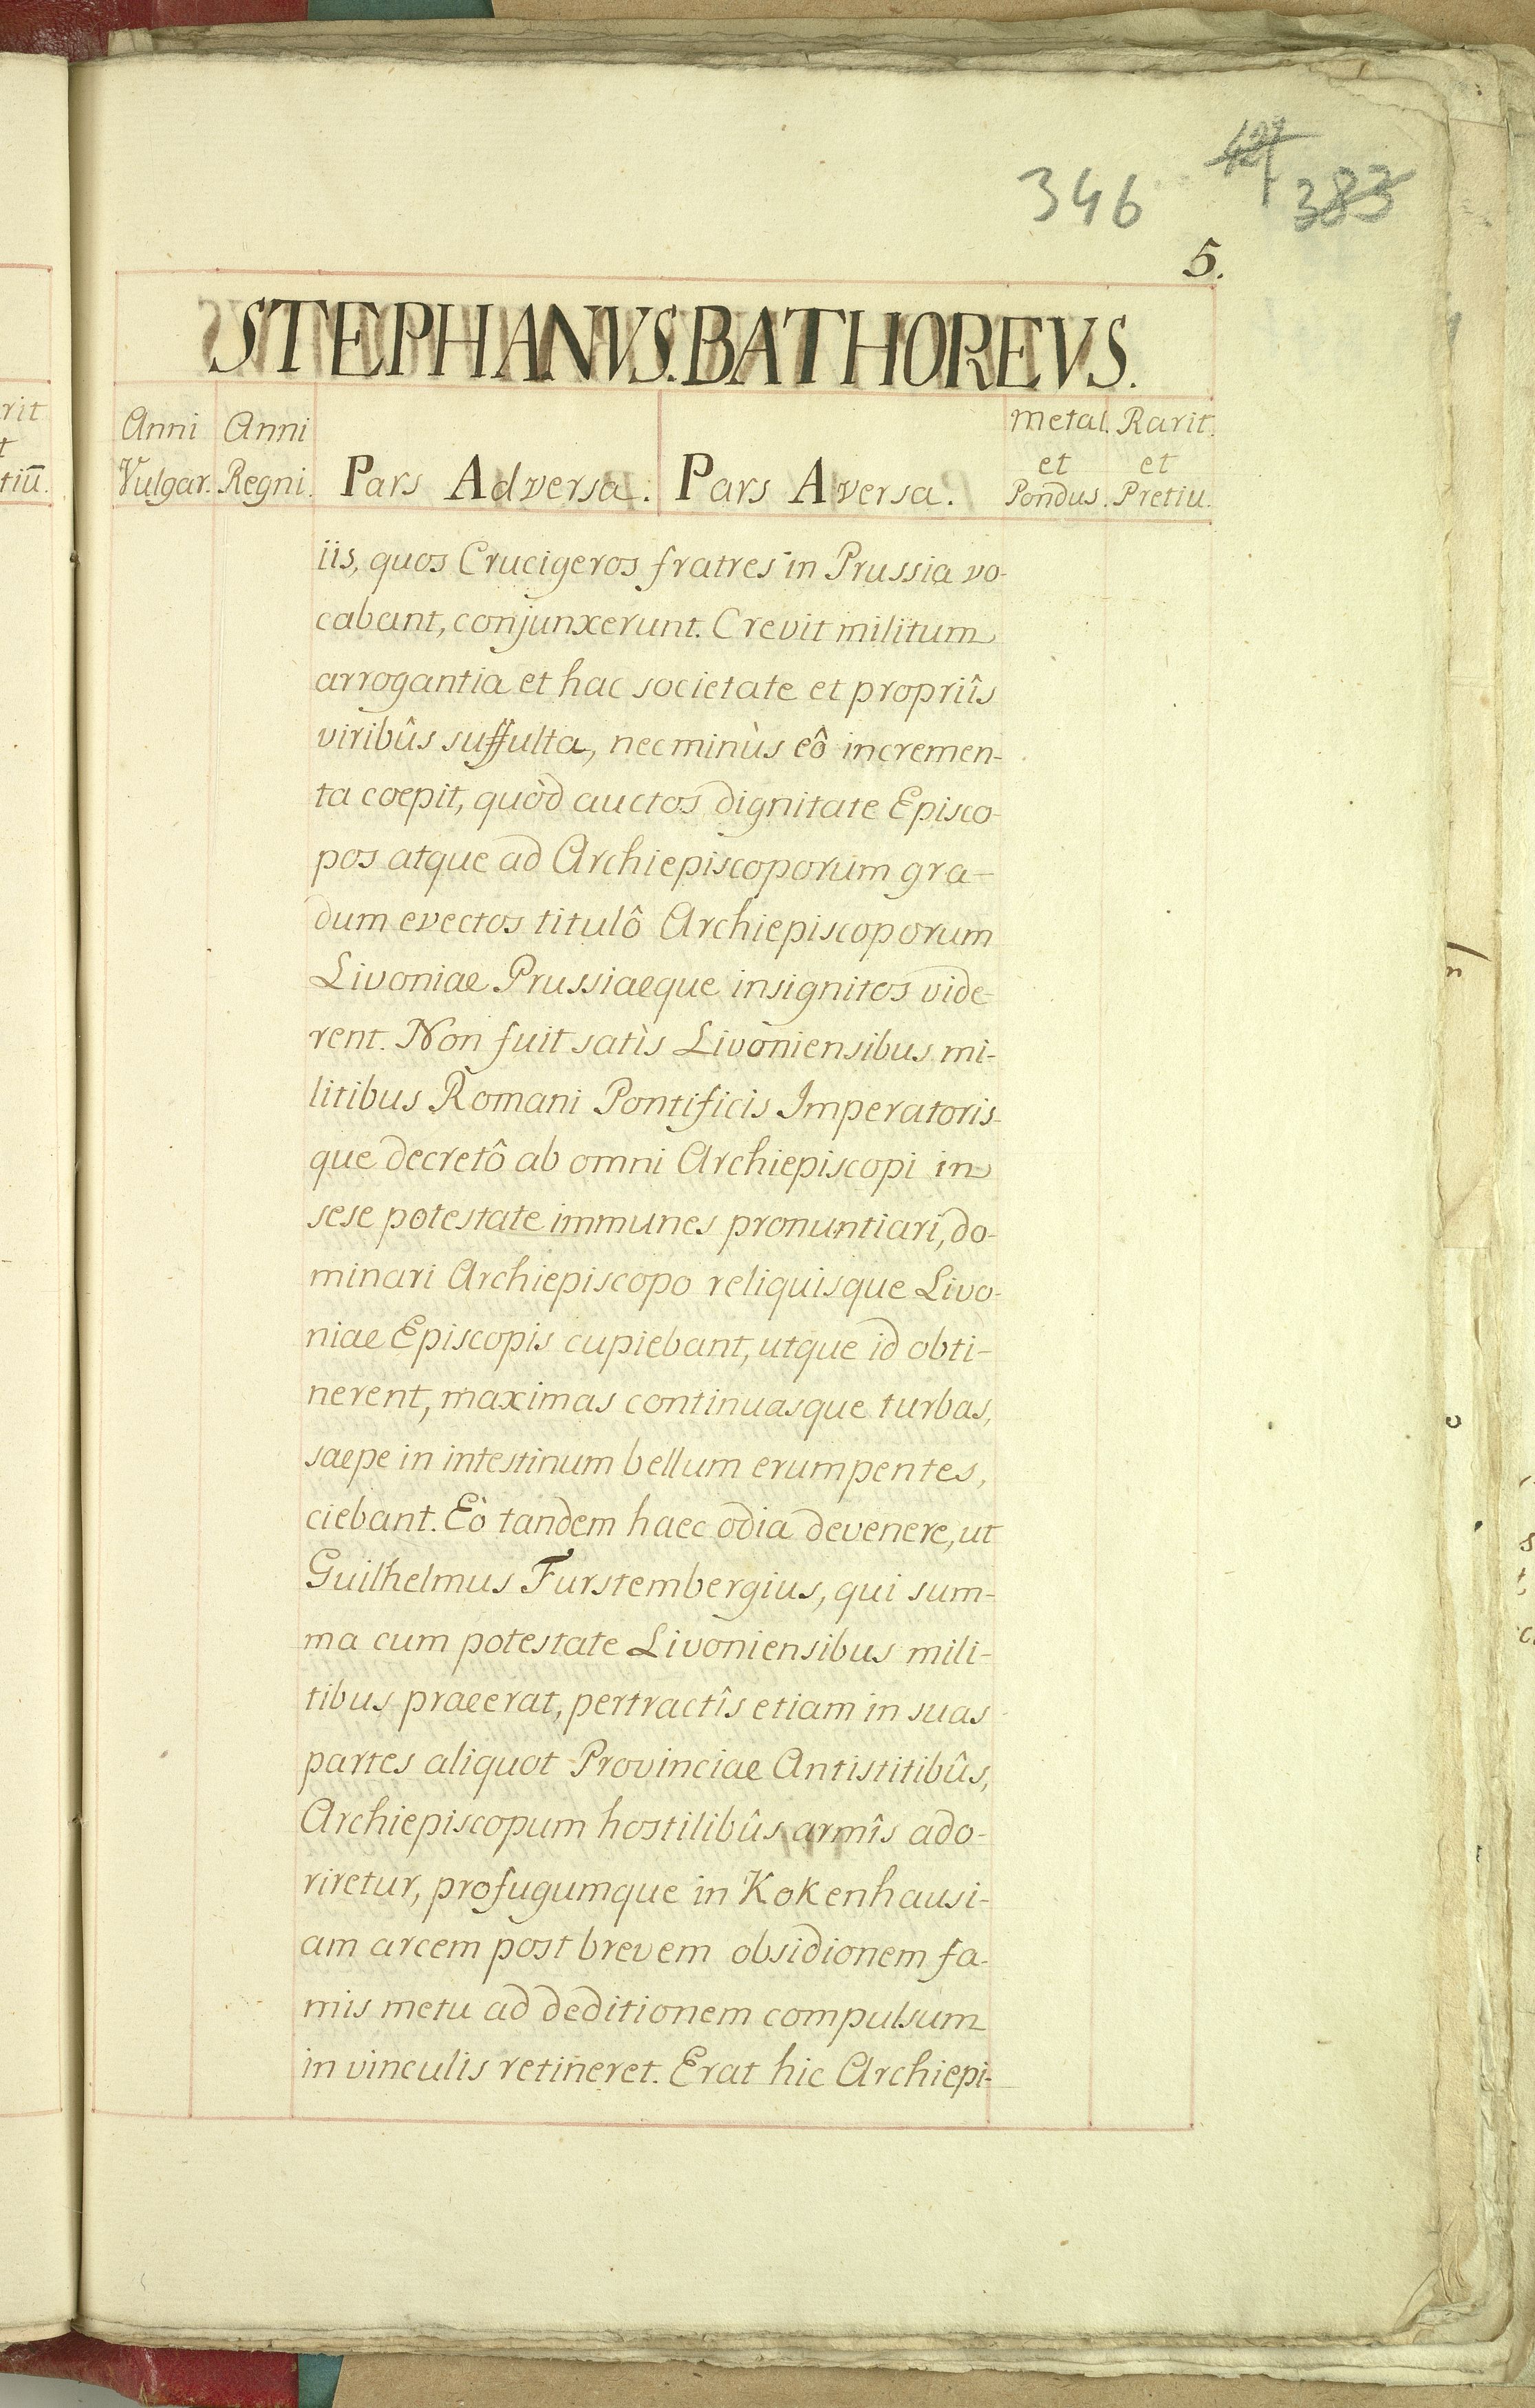 346 427 383
5.
STEPHANVS. BATHOREVS.
Anni Vulgar. Anni Regni. Pars Adversa. Pars Aversa. Metal. et Pondus. Rarit. et Pretiu.
iis, quos Crucigeros fratres in Prussia vo-
cabant, conjunxerunt. Crevit militum
arrogantia et hac societate et propriîs
viribûs suffulta, nec minùs eô incremen-
ta coepit, quòd auctos dignitate Episco-
pos atque ad Archiepiscoporum gra-
dum evectos titulô Archiepiscoporum
Livoniae Prussiaeque insignitos vide-
rent. Non fuit satìs Livoniensibus mi-
litibus Romani Pontificis Imperatoris-
que decretô ab omni Archiepiscopi in
sese potestate immunes pronuntiari, do-
minari Archiepiscopo reliquisque Livo-
niae Episcopis cupiebant, utque id obti-
nerent, maximas continuasque turbas,
saepe in intestinum bellum erumpentes,
ciebant. Eò tandem haec odia devenere, ut
Guilhelmus Furstembergius, qui sum-
ma cum potestate Livoniensibus mili-
tibus praeerat, pertractîs etiam in suas
partes aliquot Provinciae Antistitibûs,
Archiepiscopum hostilibûs armîs ado-
riretur, profugumque in Kokenhausi-
am arcem post brevem obsidionem fa-
mis metu ad deditionem compulsum
in vinculis retineret. Erat hic Archiepi-